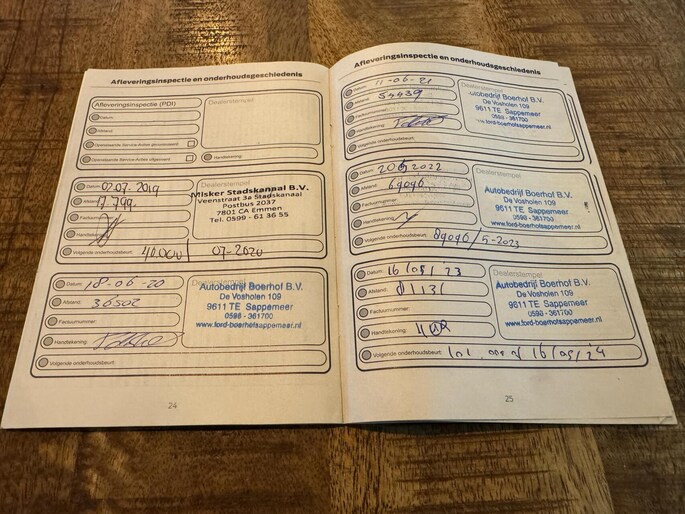 Afleveringsinspectie en onderhoudsgeschiedenis
Afleveringsinspectie (PDI)
Dealerstempel
Datum:
Afstand:
Handtekening:
Datum: 02-07-2019
Afstand: 17.799
Factuurnummer
Handtekening:
Volgende onderhoudsbeurt: 40.000 07-2020
Dealerstempel
Misker Stadskanaal B.V.
Veenstraat 3a Stadskanaal
Postbus 2037
7801 CA Emmen
Tel. 0599 - 61 36 55
Datum: 18-06-20
Afstand: 36502
Factuurnummer
Handtekening:
Volgende onderhoudsbeurt:
Dealerstempel
Autobedrijf Boerhof B.V.
De Vosholen 109
9611 TE Sappemeer
0598 - 361700
www.ford-boerhofsappemeer.nl
24
Afleveringsinspectie en onderhoudsgeschiedenis
Datum: 11-06-21
Afstand:
Factuurnummer
Handtekening:
Volgende onderhoudsbeurt:
Dealerstempel
Autobedrijf Boerhof B.V.
De Vosholen 109
9611 TE Sappemeer
0598 - 361700
www.ford-boerhofsappemeer.nl
Datum:
Afstand: 69096
Factuurnummer
Handtekening:
Volgende onderhoudsbeurt: 89096/5-2023
Dealerstempel
Autobedrijf Boerhof B.V.
De Vosholen 109
9611 TE Sappemeer
0598 - 361700
www.ford-boerhofsappemeer.nl
Datum: 16/05/23
Afstand: 81131
Factuurnummer:
Handtekening:
Volgende onderhoudsbeurt: 16/05/24
Dealerstempel
Autobedrijf Boerhof B.V.
De Vosholen 109
9611 TE Sappemeer
0598 - 361700
www.ford-boerhofsappemeer.nl
25